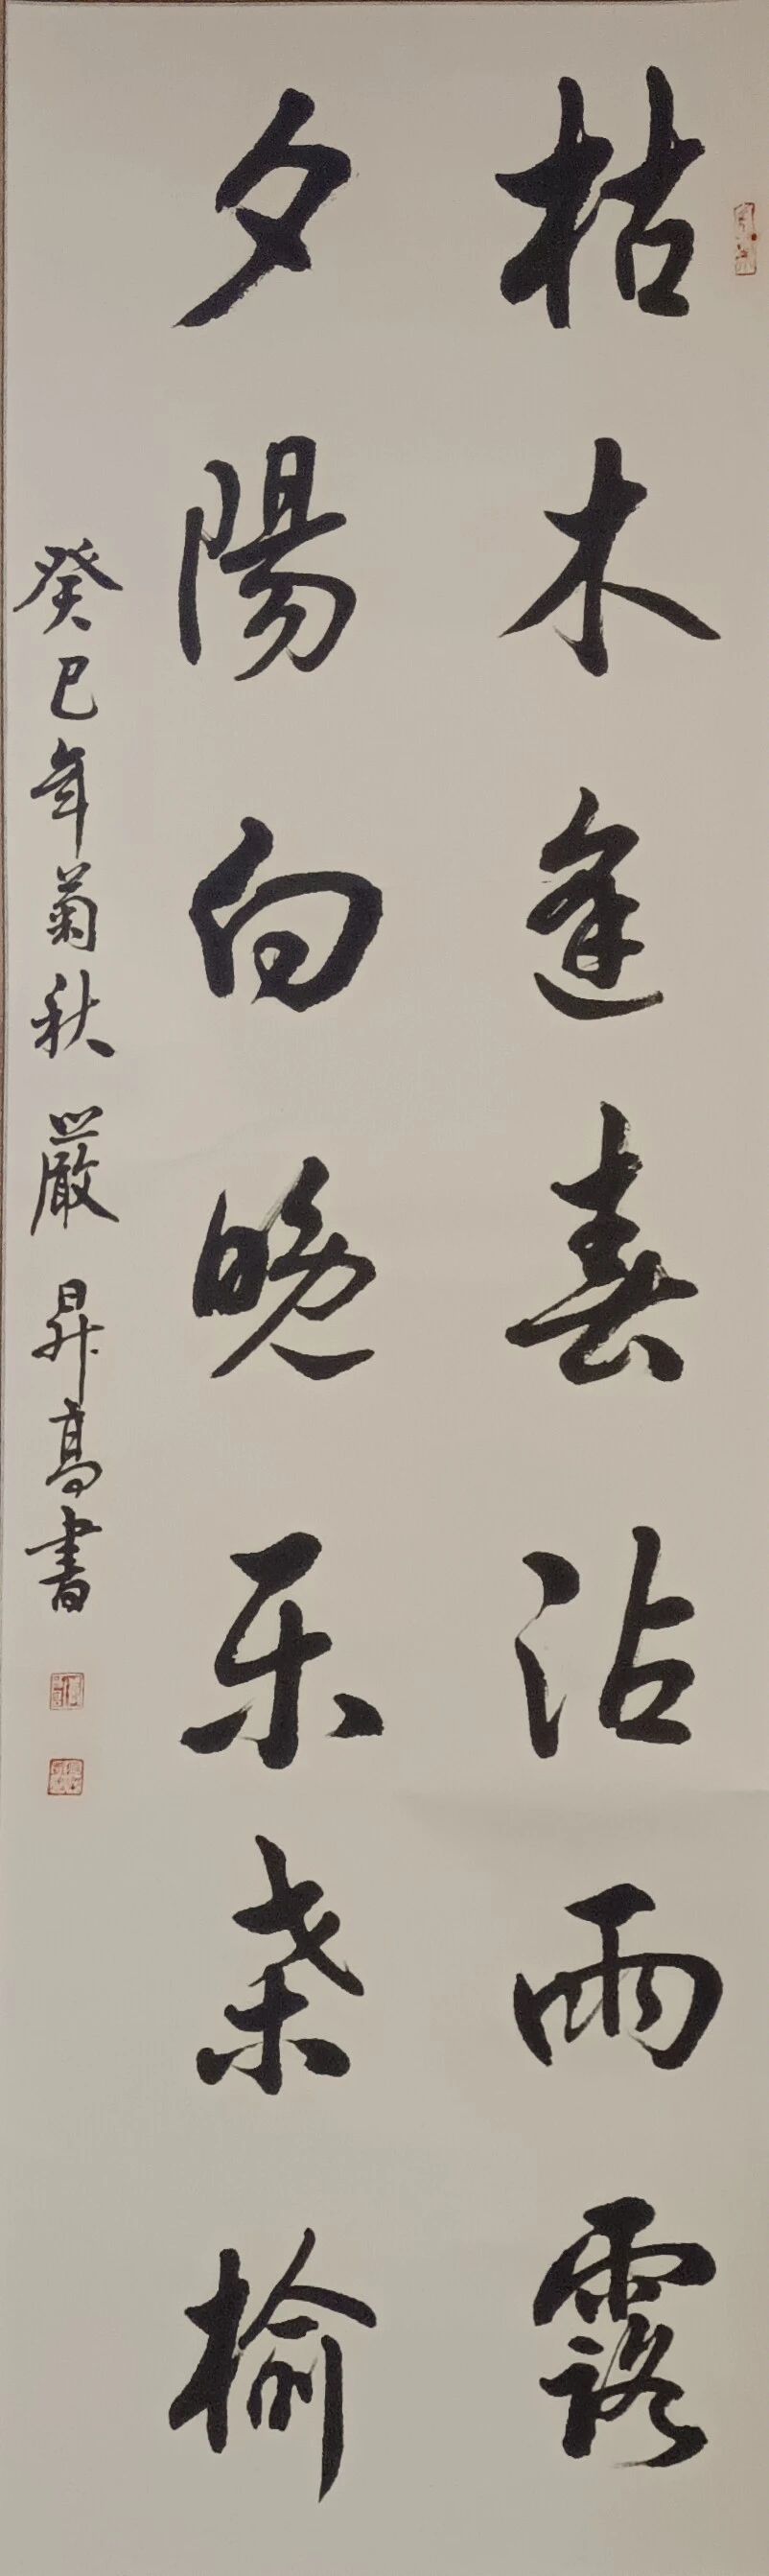 枯木逢春沾雨露
夕陽向晚乐桑榆
癸巳年菊秋嚴昇高書